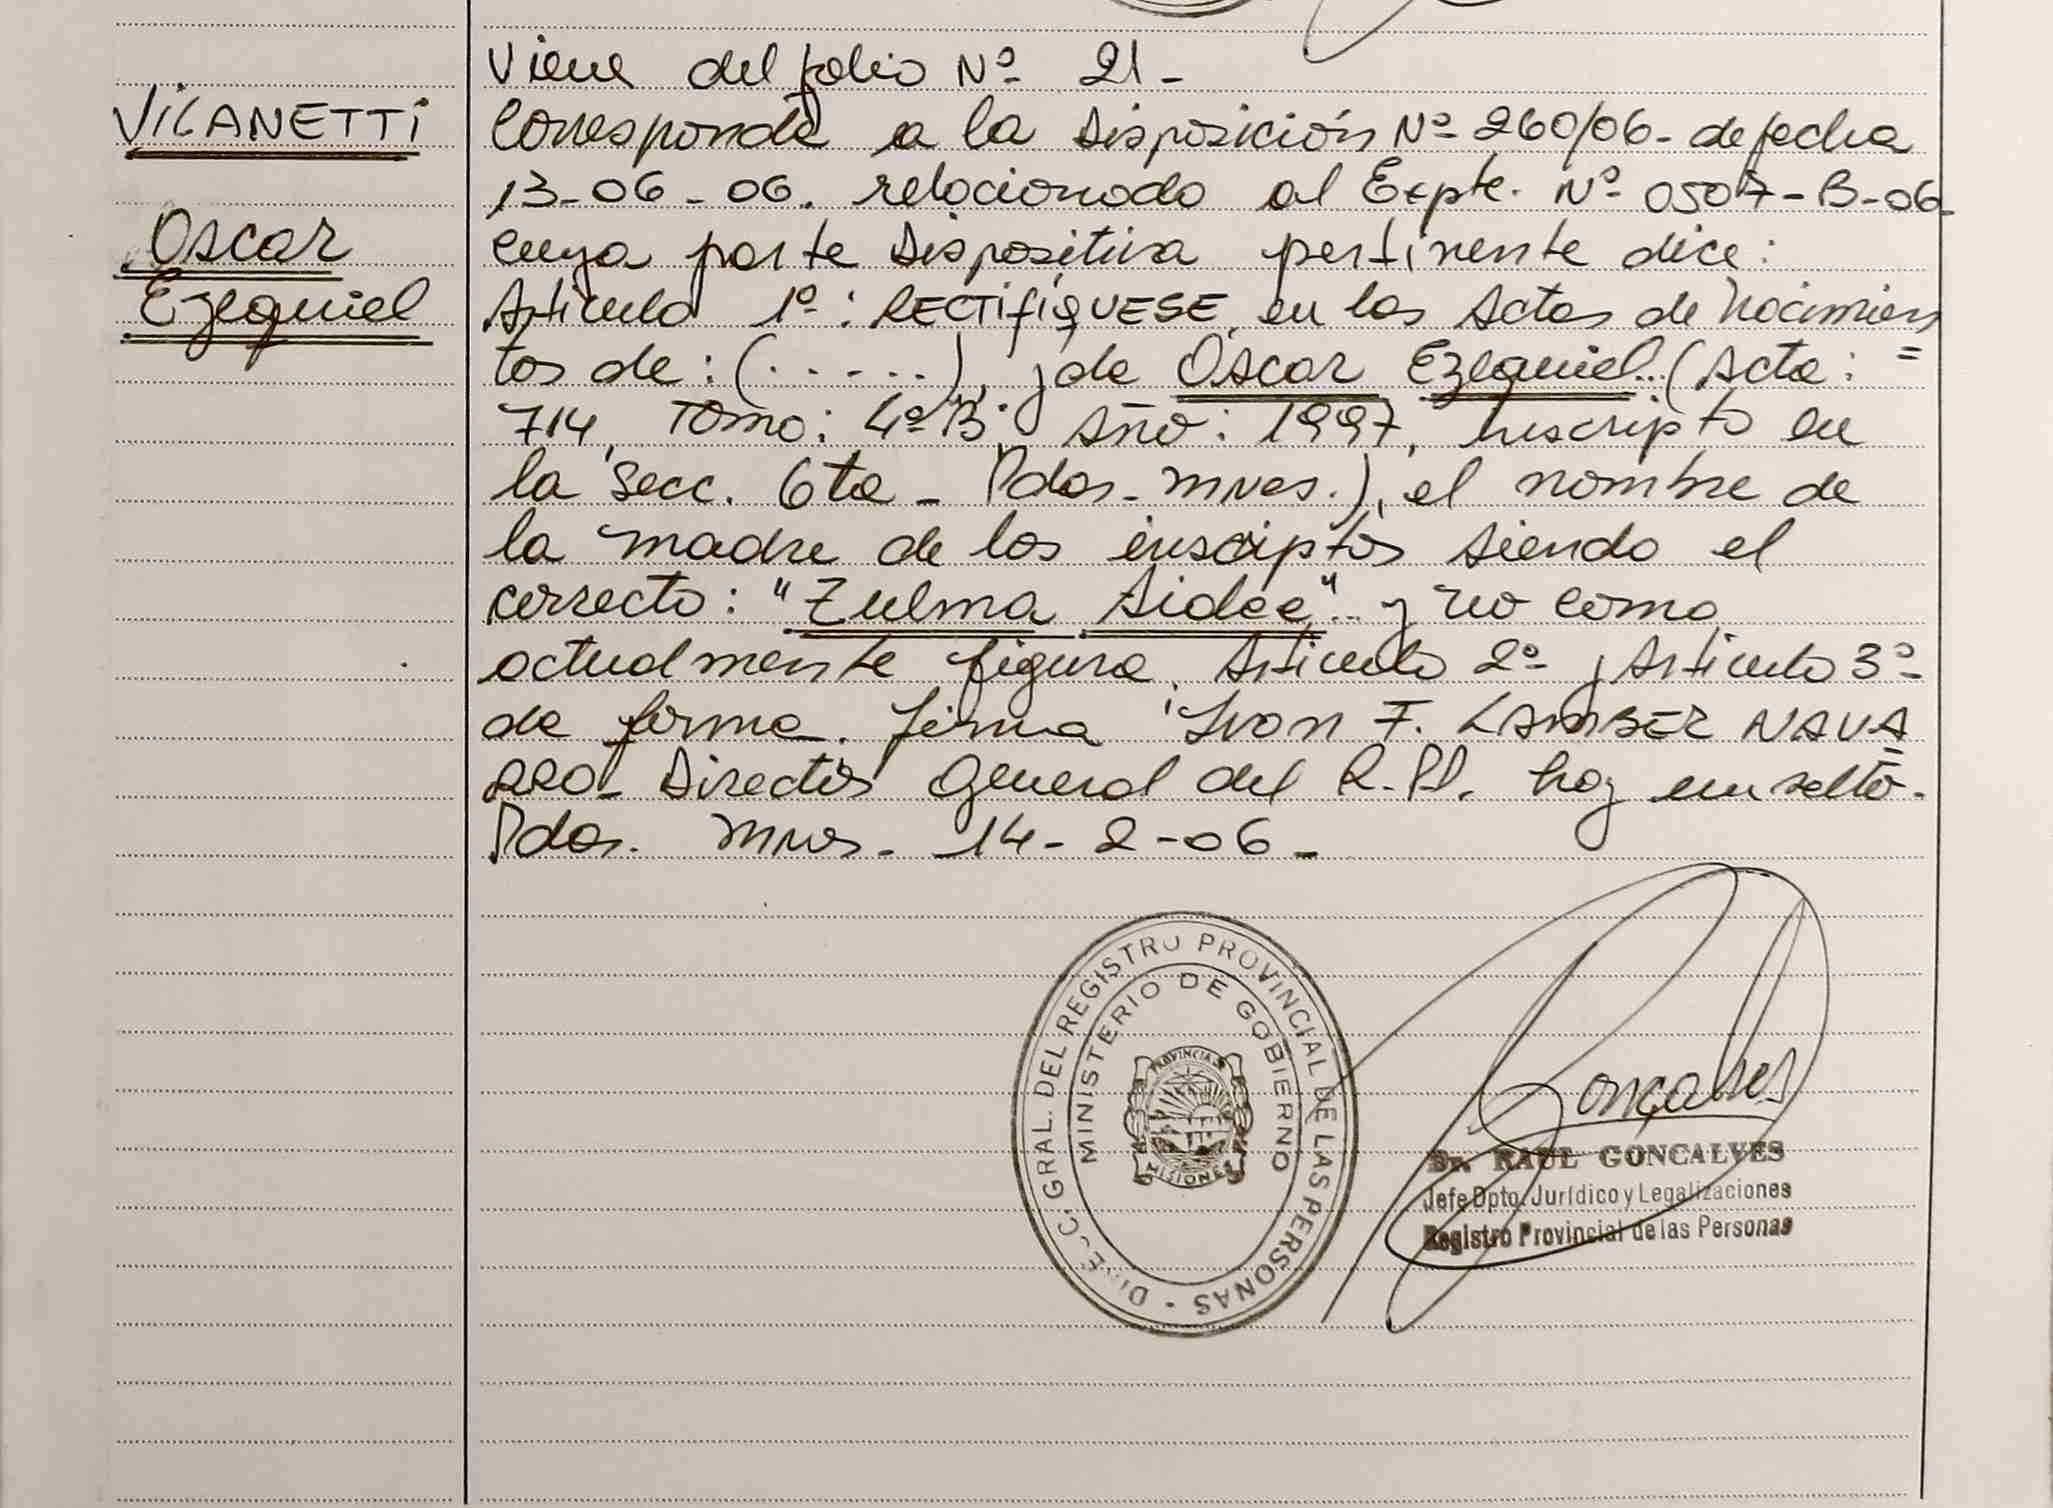 Viene del folio Nº 21-
VILANETTI
Oscar
Ezequiel
Corresponde a la Disposición Nº 260/06- de fecha
13-06-06. relacionado al Expte. Nº 0507-B-06-
cuya parte Dispositiva pertinente dice:
Artículo 1º: RECTIFÍQUESE, en las Actas de Nacimien
tos de: (.....), y de Oscar Ezequiel (Acta:
714, Tomo: 4º B, Año: 1997, Inscripto en
la Secc. 6ta - Pdas. Mnes.), el nombre de
la madre de los inscriptos siendo el
correcto: "Zulma Aidee" y no como
actualmente figura. Artículo 2º y Artículo 3º
de forma. firma Ivan F. LAMBER NAVA
RRO- Director General del R.P.P. hoy en
Pdas. Mnes. 14-2-06-
DIREC. GRAL. DEL REGISTRO PROVINCIAL DE LAS PERSONAS
MINISTERIO DE GOBIERNO
PROVINCIA DE
MISIONES
Gonçalves
Dr. RAUL GONCALVES
Jefe Dpto. Jurídico y Legalizaciones
Registro Provincial de las Personas